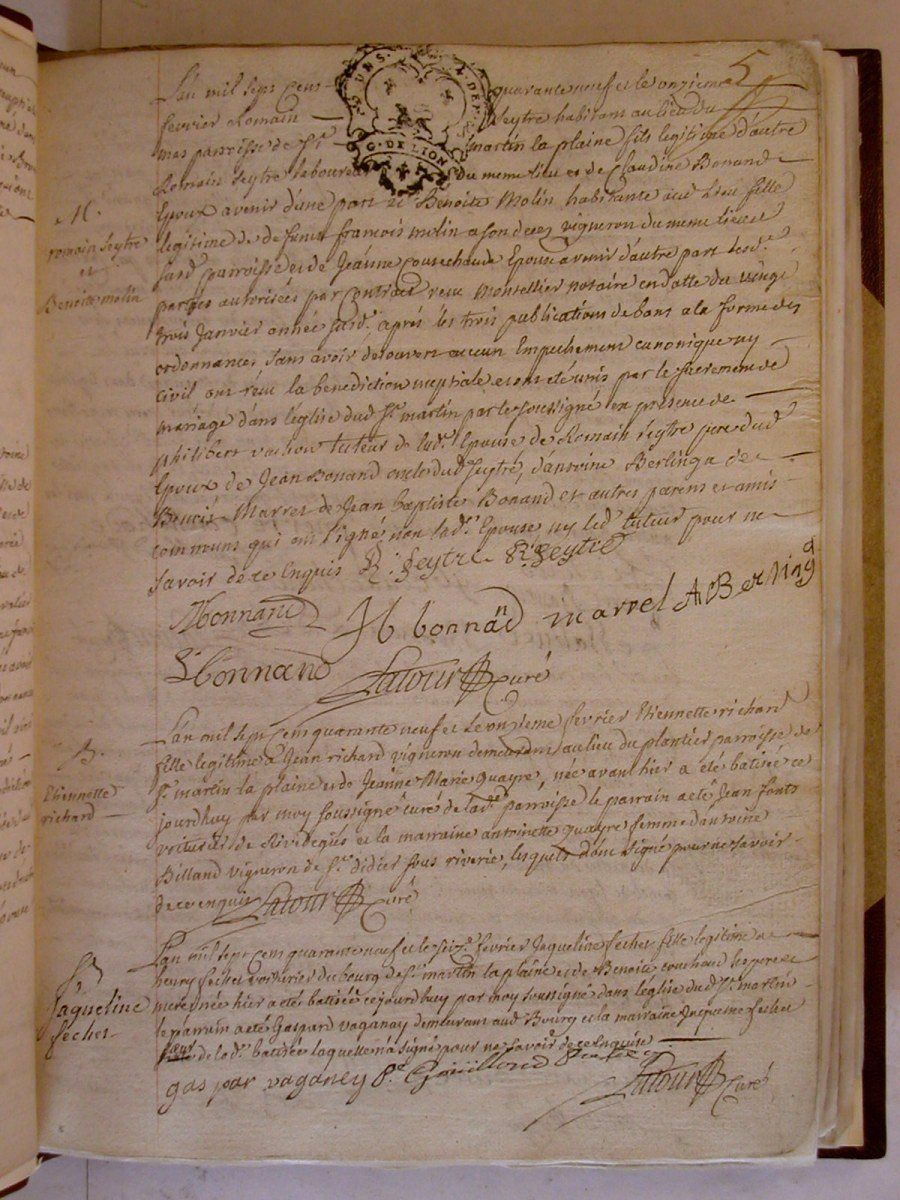 5
UNS. 4. DEN
G. DE LION
L'an mil sept cens quarante neuf et le onzieme
fevrier Romain Seytre habitant au lieu du
mas parroisse de St martin la plaine fils legitime d'autre
Romain Seytre laboureur du meme lieu et de Claudine Bonand
Epoux avenir d'une part et Benoite Molin habitante aud. Lieu fille
legitime de defunt francois molin a son deces vigneron du meme lieu
susd. parroisse et de Jeanne Epouse avenir d'autre part lesd.
parties autorisées par Contract receu Montellier notaire en datte du vingt
trois Janvier année susd. après les trois publications de bans a la forme des
ordonnances, sans avoir decouvert aucun Empechement canonique ny
civil ont recu la benediction nuptiale et ont eté unis par le sacrement de
mariage dans leglise dud St martin par le soussigné en presence de
philibert vachon tuteur de lad. Epouse de Romain Seytre pere dud
Epoux de Jean Bonand oncle dud Seytre, d'antoine Berlinga de
Benoit Marrel de Jean baptiste Bonand et autres parens et amis
communs qui ont signé non lad. Epouse ny led. tuteur pour ne
savoir de ce Enquis R. Seytre R. Seytre
M.
romain Seytre
et
Benoite molin
JBonnand JB bonnand marrel A Berling
bonnand Latour Curé
L'an mil sept cent quarante neuf et le onzieme fevrier Etiennette richard
fille legitime a Jean richard vigneron demeurant au lieu du plantier parroisse de
St martin la plaine et de Jeanne Marie quayre, née avant hier a eté batisée ce
jourdhuy par moy soussigné curé de lad. parroisse le parrain a eté Jean
voiturier de Rivedegiés et la marraine antoinette quayre femme d'antoine
Billand vigneron de St didier sous riverie, lesquels signé pour ne savoir
de ce enquis Latour Curé
B.
Etiennette
richard
L'an mil sept cent quarante neuf et le fevrier Jaqueline fechet fille legitime a
henry fechet voiturier du bourg de St martin la plaine et de Benoite ses pere et
mere née hier a eté batisée ce jourdhuy par moy soussigné dans leglise dud St martin
le parrain a eté Gaspard vaganay demeurant aud Bourg et la marraine Jaqueme fechet
sœur de lad. batisée laquelle n'a signé pour ne savoir de ce Enquise
B
Jaqueline
fechet
gaspar vaganey
Latour Curé